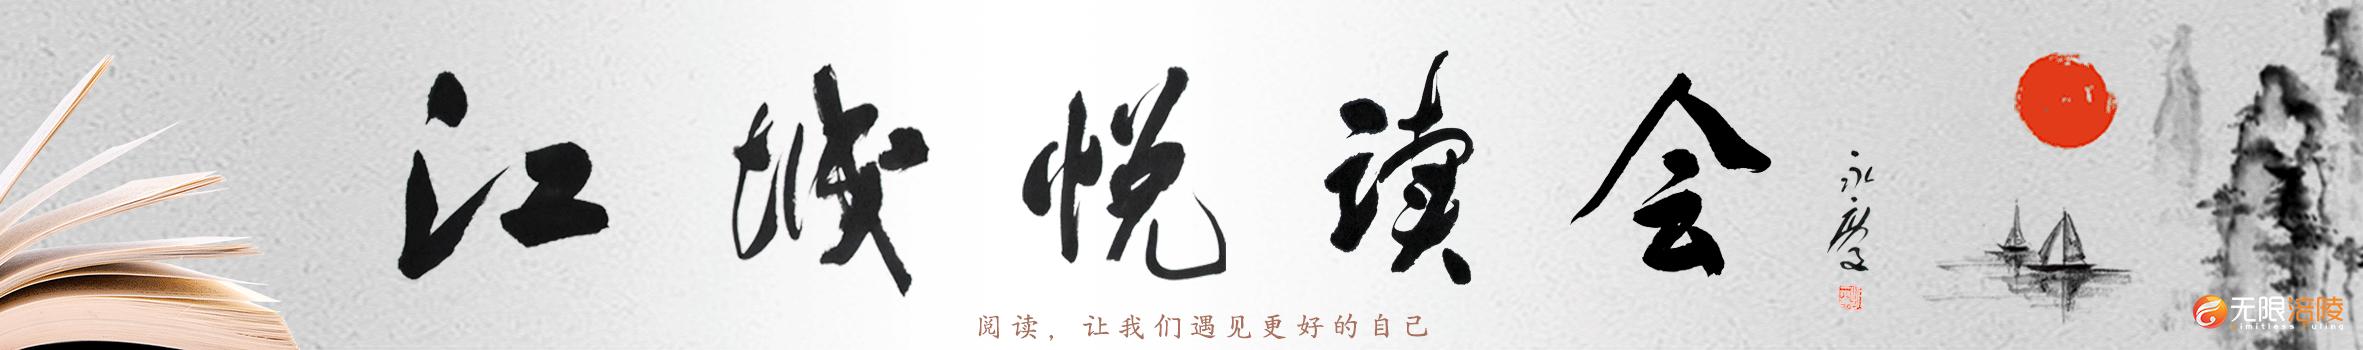 江城悦读会
永庆
阅读，让我们遇见更好的自己
无限涪陵
imitless uling